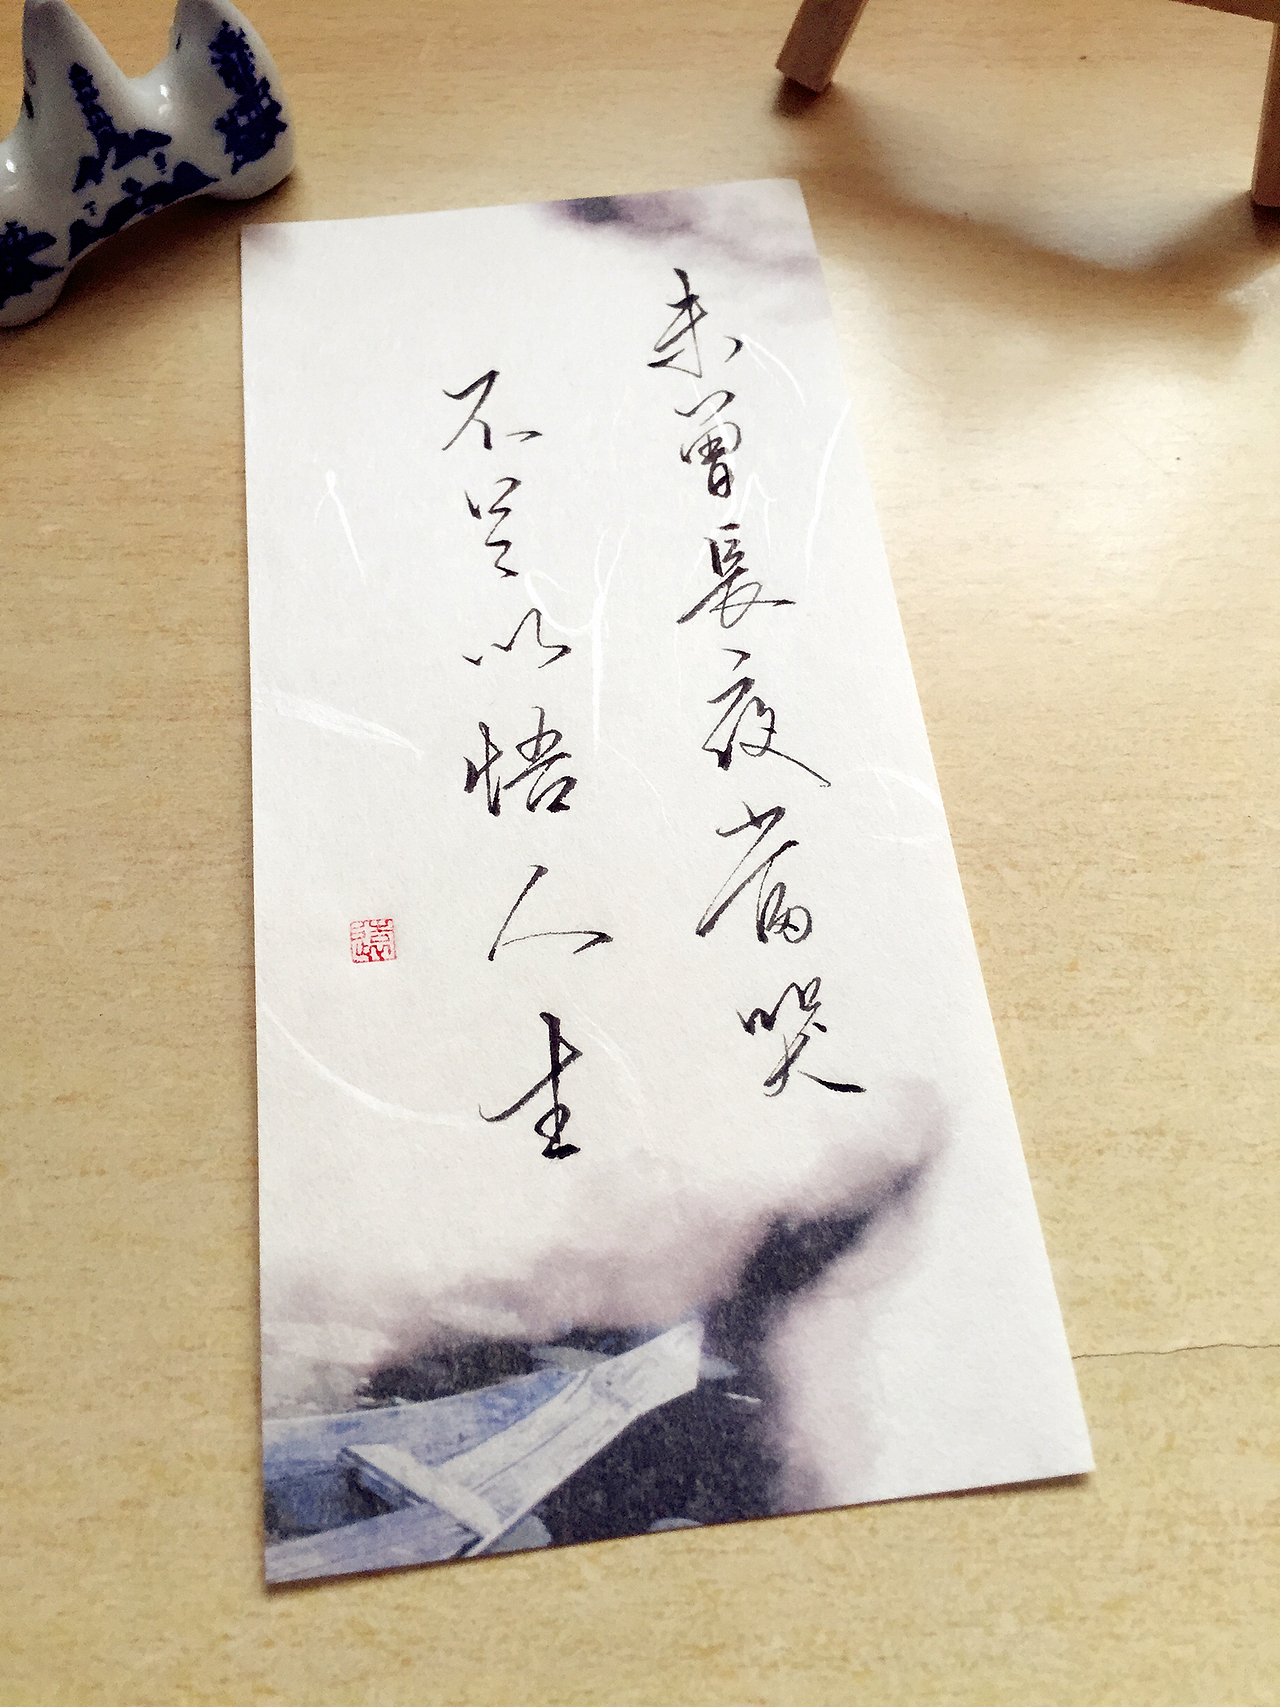 未曾長夜當哭
不足以悟人生